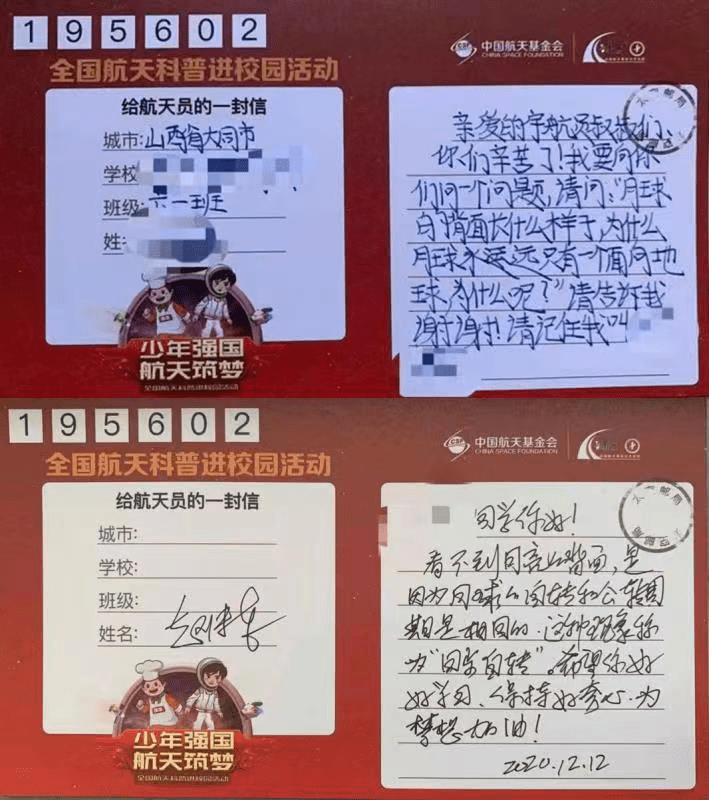 195602
全国航天科普进校园活动
给航天员的一封信
城市:山西省大同市
学校
班级:六一班
姓名
少年强国
航天筑梦
全国航天科普进校园活动
中国航天基金会
CHINA SPACE FOUNDATION
亲爱的宇航员叔叔们、
你们辛苦了!我要向你
们问一个问题,请问:"月球
的背面长什么样子,为什么
月球永远远只有一个面向地
球,为什么呢?"请告诉我
谢谢!请记住我叫
195602
全国航天科普进校园活动
中国航天基金会
CHINA SPACE FOUNDATION
给航天员的一封信
城市:
学校:
班级:
姓名:
少年强国
航天筑梦
全国航天科普进校园活动
太空邮局
同学你好!
看不到月亮的背面,是
因为月球的自转和公转周
期是相同的.这种现象称
为"同步自转"。希望你好
好学习、保持好奇心.为
梦想加油!
2020.12.12